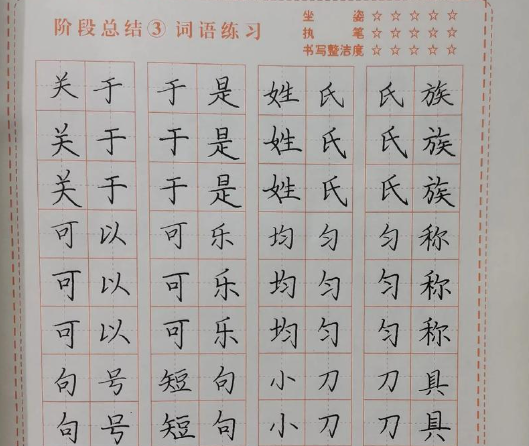 阶段总结③ 词语练习
坐 姿 ☆☆☆☆☆
执 笔 ☆☆☆☆☆
书写整洁度 ☆☆☆☆☆
关于 于是 姓氏 氏族
关于 于是 姓氏 氏族
关于 于是 姓氏 氏族
可以 可乐 均匀 匀称
可以 可乐 均匀 匀称
可以 可乐 均匀 匀称
句号 短句 小刀 刀具
句号 短句 小刀 刀具